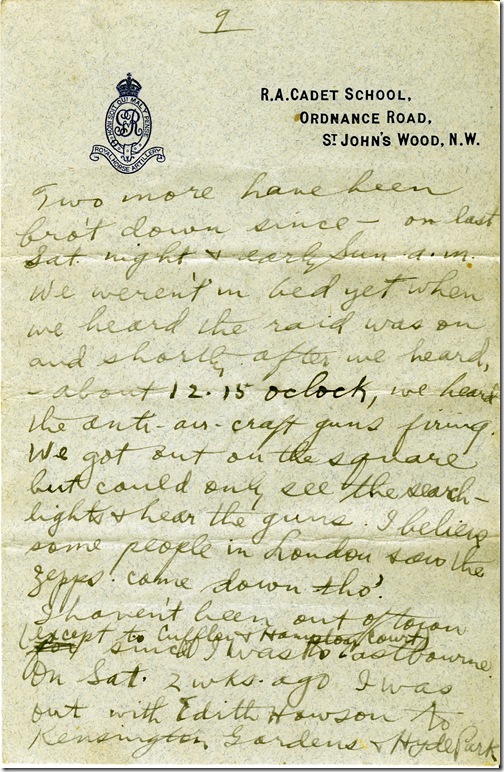 9
HONI SOIT QUI MAL Y PENSE
GR
ROYAL HORSE ARTILLERY
R.A. CADET SCHOOL,
ORDNANCE ROAD,
ST JOHN'S WOOD, N.W.
Two more have been
bro't down since – on last
Sat. night & early Sun a.m.
We weren't in bed yet when
we heard the raid was on
and shortly after we heard,
– about 12.15 oclock, we heard
the anti-air-craft guns firing.
We got out on the square
but could only see the search-
lights & hear the guns. I believe
some people in London saw the
zepps. come down tho'.
I haven't been out of town
(except to Cuffley & Hampton Court)
since I was to Eastbourne.
On Sat. 2 wks. ago I was
out with Edith Howson to
Kensington Gardens & Hyde Park